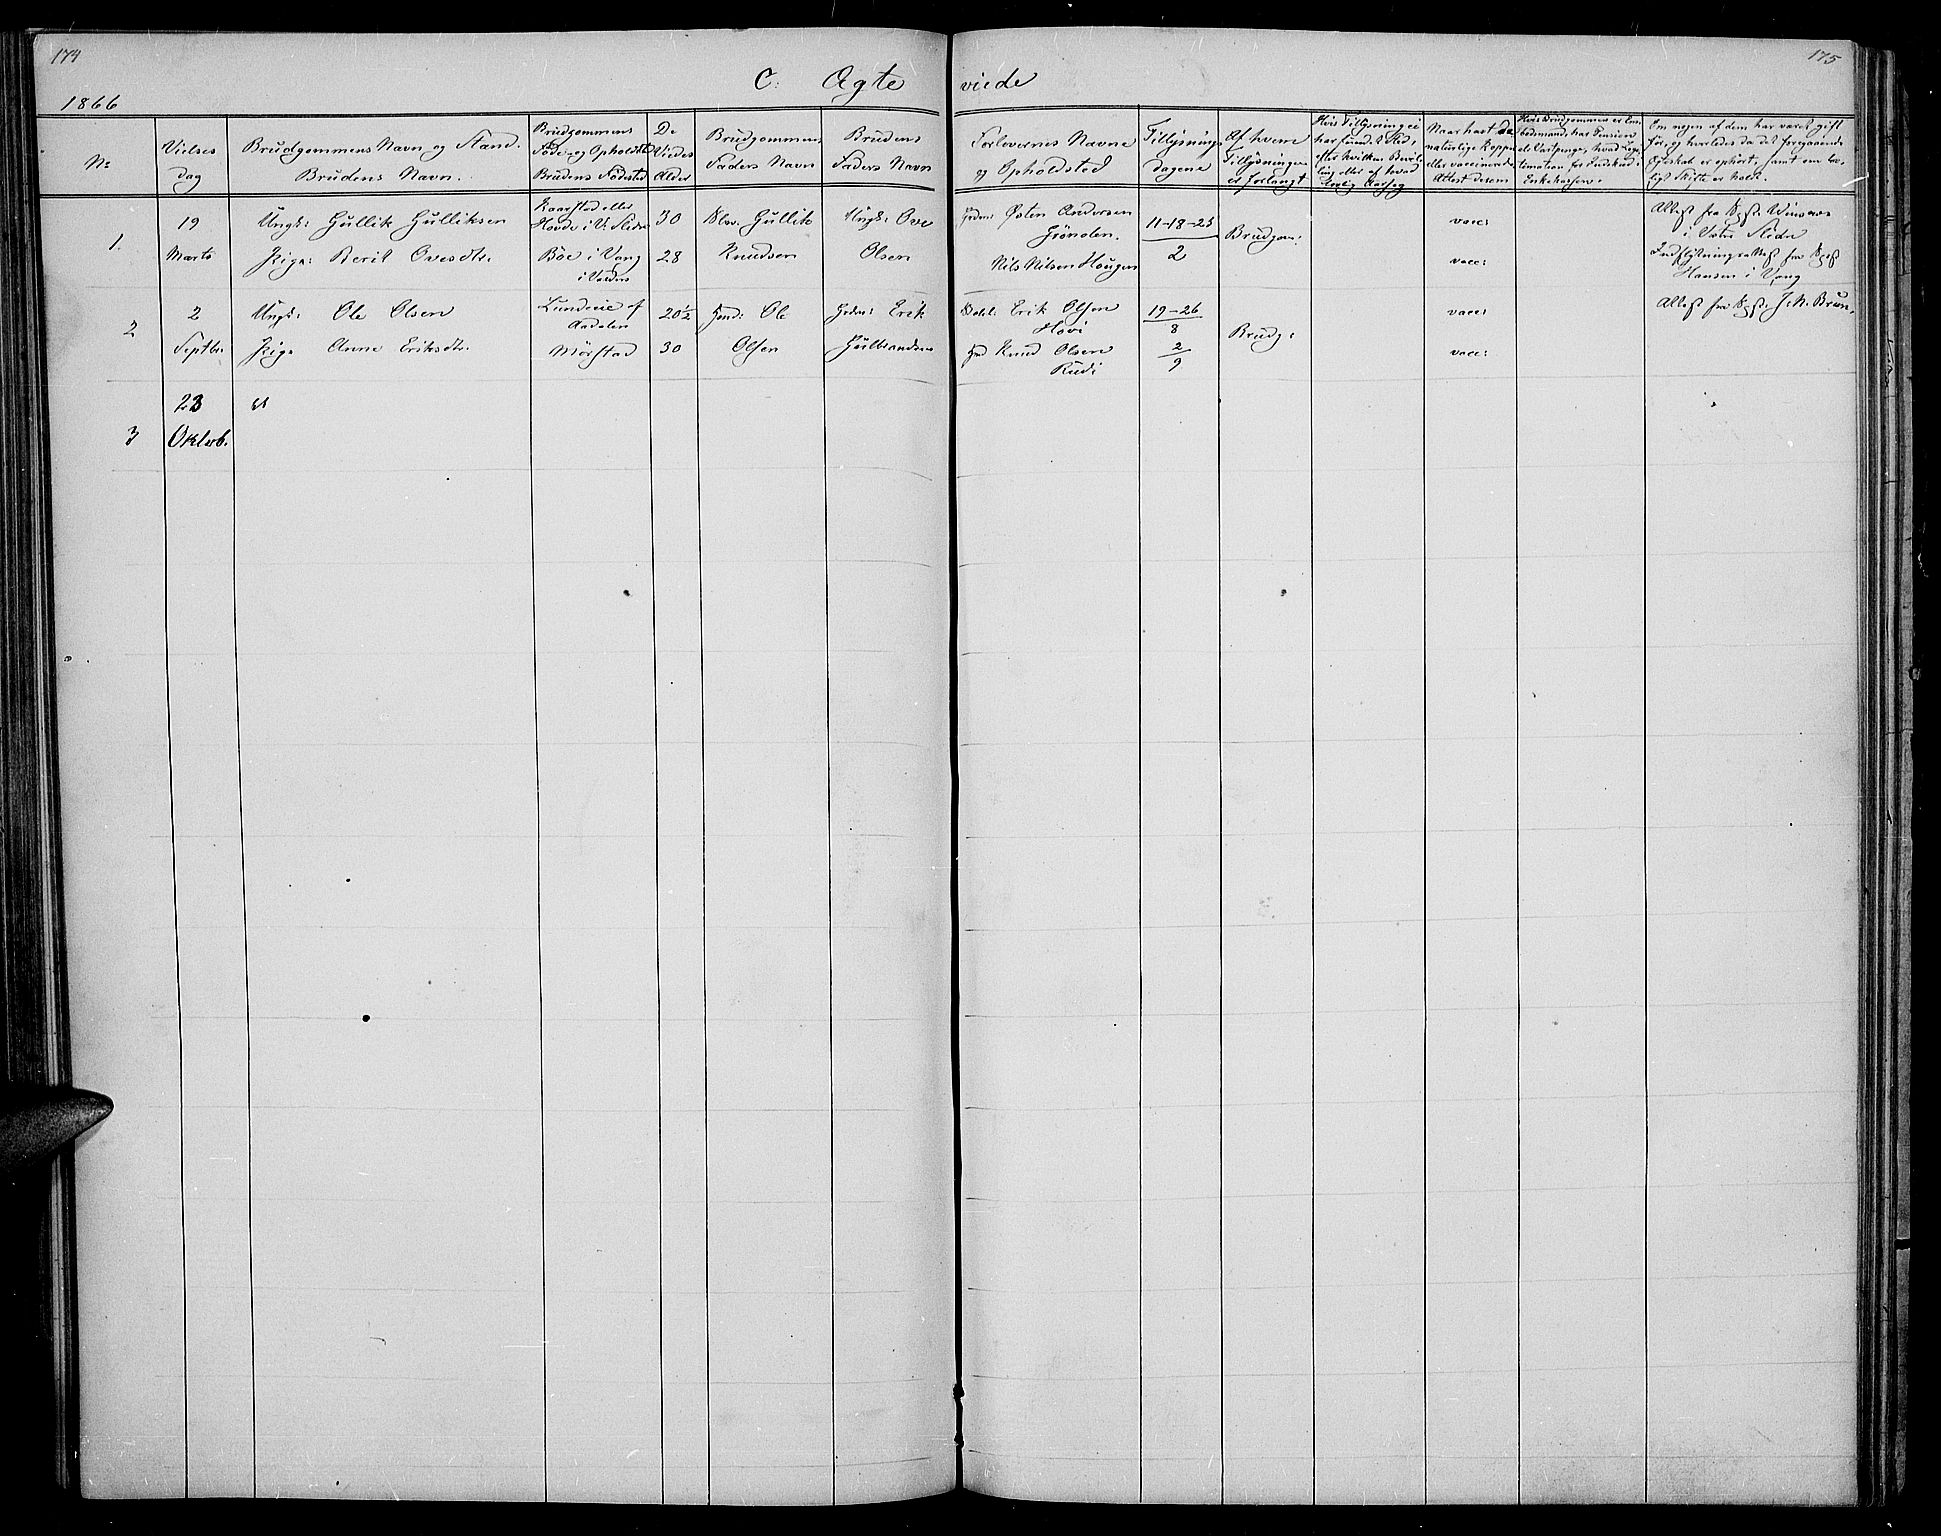 174
175
C. Ægte viede
1866
No
Vielses
Dag
Brudgommens Navn og Stand.
Brudens Navn.
Brudgommens
Føde- og Opholdsted
Brudens Fødested
De
Viedes
Alder
Brudgommens
Faders Navn
Brudens
Faders Navn
Forlovernes Navne
og Opholdsted
Tillysnings
dagene
Af hvem
Tillysningen
er forlangt
Hvis Tillysning ei
har fundet Sted,
efter hvilken Bevil-
ling eller af hvad
lovlig Aarsag
Naar havt de
naturlige Kopper
eller vaccinerede
Attest derom
Hvis Brudgommen er Em-
bedsmand, har Pension
el. Vartpenge, hvad Legi-
timation for Indskud i
Enkekassen.
Om nogen af dem har været gift
før, og hvorledes da det foregaaende
Ægteskab er ophørt, samt om lov-
ligt Skifte er holdt.
1.
19
Marts
Ungk: Gullik Gulliksen
Pige: Berit Ovesdtr.
Kaarstad eller
Hovde i V. Slidre
Bøe i Vang
i Valders
30
28
Gullik
Knudsen
Ungk: Ove
Olsen
Grdm: Østen Andersen
Grønolen.
Nils Nilsen Hougen
11-18-25
2
Brudgom:
vacc:
vacc:
Attest fra Sgpst. Winsnes
i Vestre Slidre
Indflytningsattest fra Sgpst
Hansen i Vang
2
2
Septbr.
Ungk: Ole Olsen
Pige Anne Eriksdtr.
Lundeeie af
Aadalen
Mørstad
20½
30
Ole
Olsen
Grdm: Erik
Gulbrandsen
Erik Olsen
Hovi
Knud Olsen
Rudi
19-26
8
2
9
Brudg:
vacc:
vacc:
Attest fra Sgpst. J. N. Brun.
3
23
Oktob.